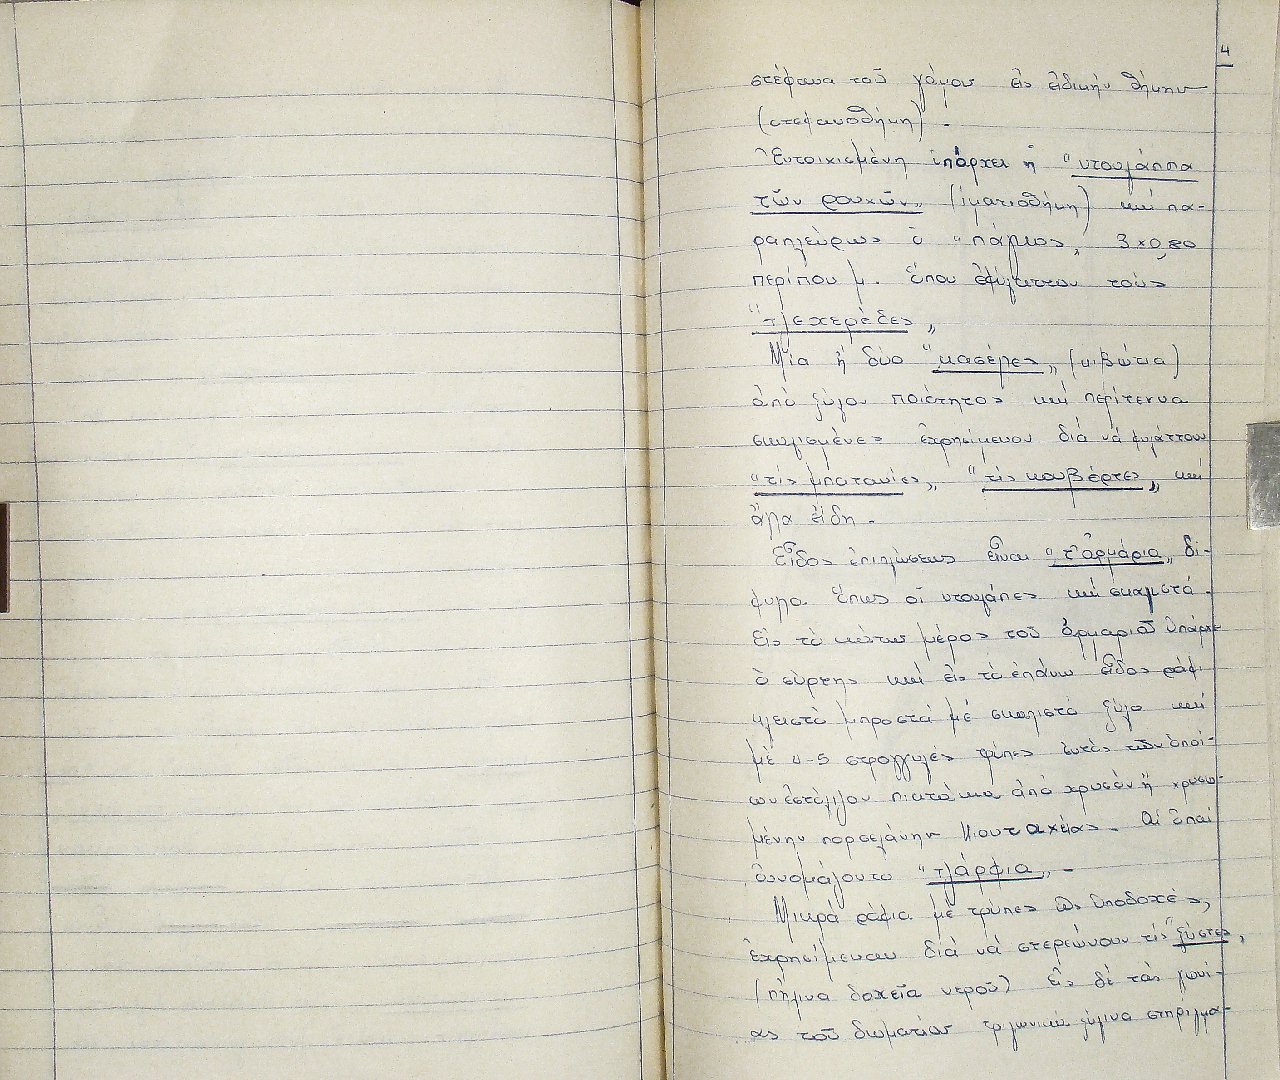 4
στέφανα τοῦ γάμου εἰς εἰδικήν θήκην
(στεφανοθήκη).
Ἐντοιχισμένη ὑπάρχει ἡ "ντουλάππα
τῶν ρουχῶν„ (ἱματιοθήκη) καί πα-
ραπλεύρως ὁ "πάγκος„ 3 x 0,80
περίπου μ. ὅπου ἐφύλαττον τούς
"τζεχερέδες„
Μία ἤ δύο "κασέλες„ (κιβώτια)
ἀπό ξύλον ποιότητος καί περίτεχνα
σκαλισμένες ἐχρησίμευον διά νά φυλάττουν
"τίς μπατανίες„, "τίς κουβέρτες„ καί
ἄλλα εἴδη.
Εἶδος ἐπιπλώσεως εἶναι "τ' ἀρμάρια„ δί-
φυλλα ὅπως οἱ ντουλάπες καί σκαλιστά.
Εἰς τό κάτω μέρος τοῦ ἀρμαριοῦ ὑπάρχει
ὁ σύρτης καί εἰς τό ἐπάνω εἶδος ράφι
κλειστό μπροστά μέ σκαλιστό ξύλο καί
μέ 4-5 στρογγυλές τρύπες ἐντός τῶν ὁποί-
ων ἔστελλον πιατάκια ἀπό χρυσόν ἤ χρυσω-
μένην πορσελάνην Κουταχείας. Αἱ ὀπαί
ὠνομάζοντο "τζάρφια„ -
Μικρά ράφια μέ τρύπες ὡς ὑποδοχές,
ἐχρησίμευαν διά νά στερεώνουν τίς "ξύστες,
(πήλινα δοχεῖα νεροῦ) Εἰς δέ τάς γωνί-
ας τοῦ δωματίου τριγωνικά ξύλινα στηρίγμα-